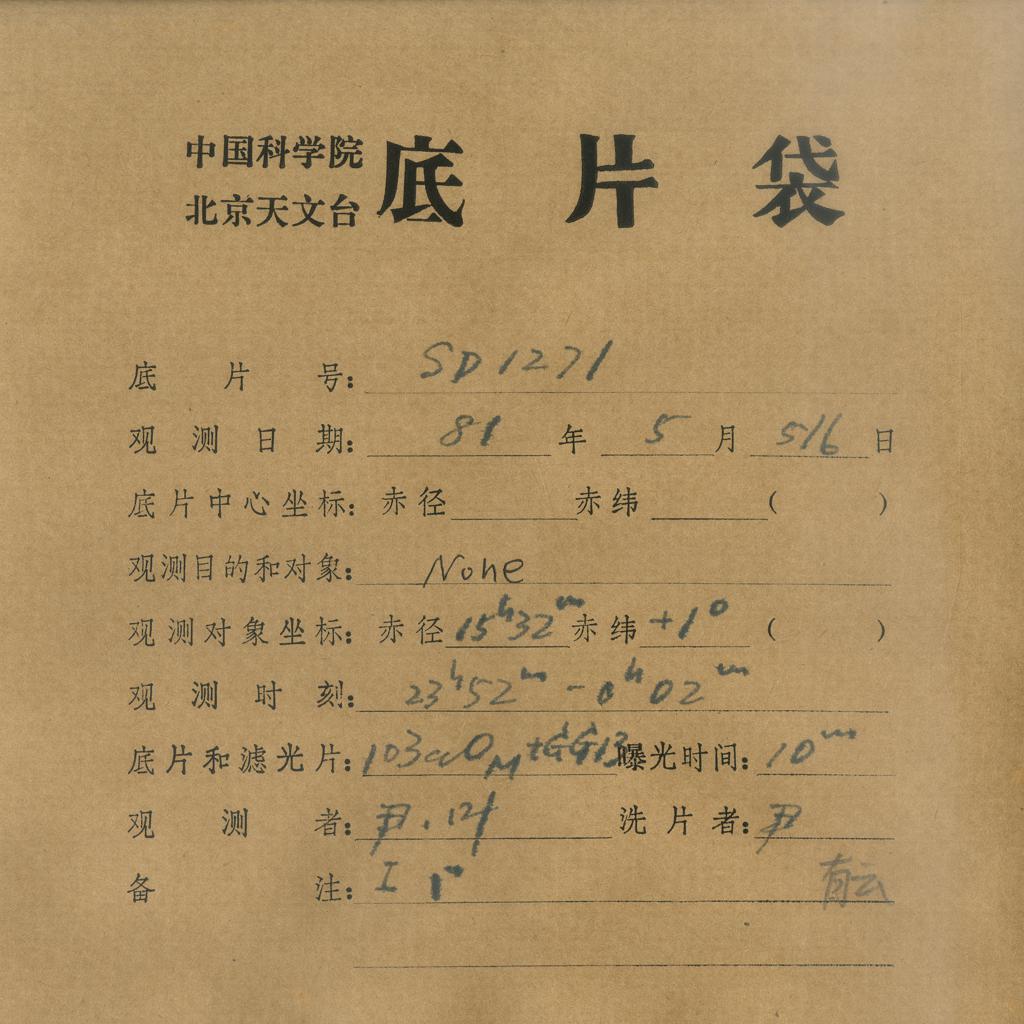 中国科学院
北京天文台
底片袋
底片号： SD1271
观测日期： 81年 5月 5/6日
底片中心坐标：赤径 赤纬 （ ）
观测目的和对象： None
观测对象坐标：赤径 15ʰ32ᵐ 赤纬 +1° （ ）
观测时刻： 23ʰ52ᵐ - 0ʰ02ᵐ
底片和滤光片：103aO M +GG13 曝光时间：10ᵐ
观测者：尹． 洗片者：尹
备注：I 有云